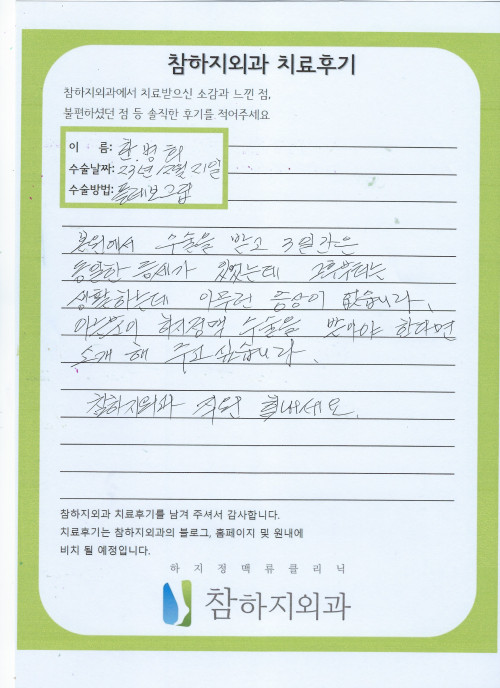 참하지외과 치료후기
참하지외과에서 치료받으신 소감과 느낀 점,
불편하셨던 점 등 솔직한 후기를 적어주세요
이 름: 한병희
수술날짜: 23년 12월 21일
수술방법:
본원에서 수술을 받고 3일간은
통증세가 있었는데 그후부터는
생활하는데 아무런 증상이 없습니다.
하지정맥 수술을 받아야 한다면
소개 해 주고 싶습니다.
참하지외과 직원 힘내세요.
참하지외과 치료후기를 남겨 주셔서 감사합니다.
치료후기는 참하지외과의 블로그, 홈페이지 및 원내에
비치 될 예정입니다.
하지정맥류클리닉
참하지외과